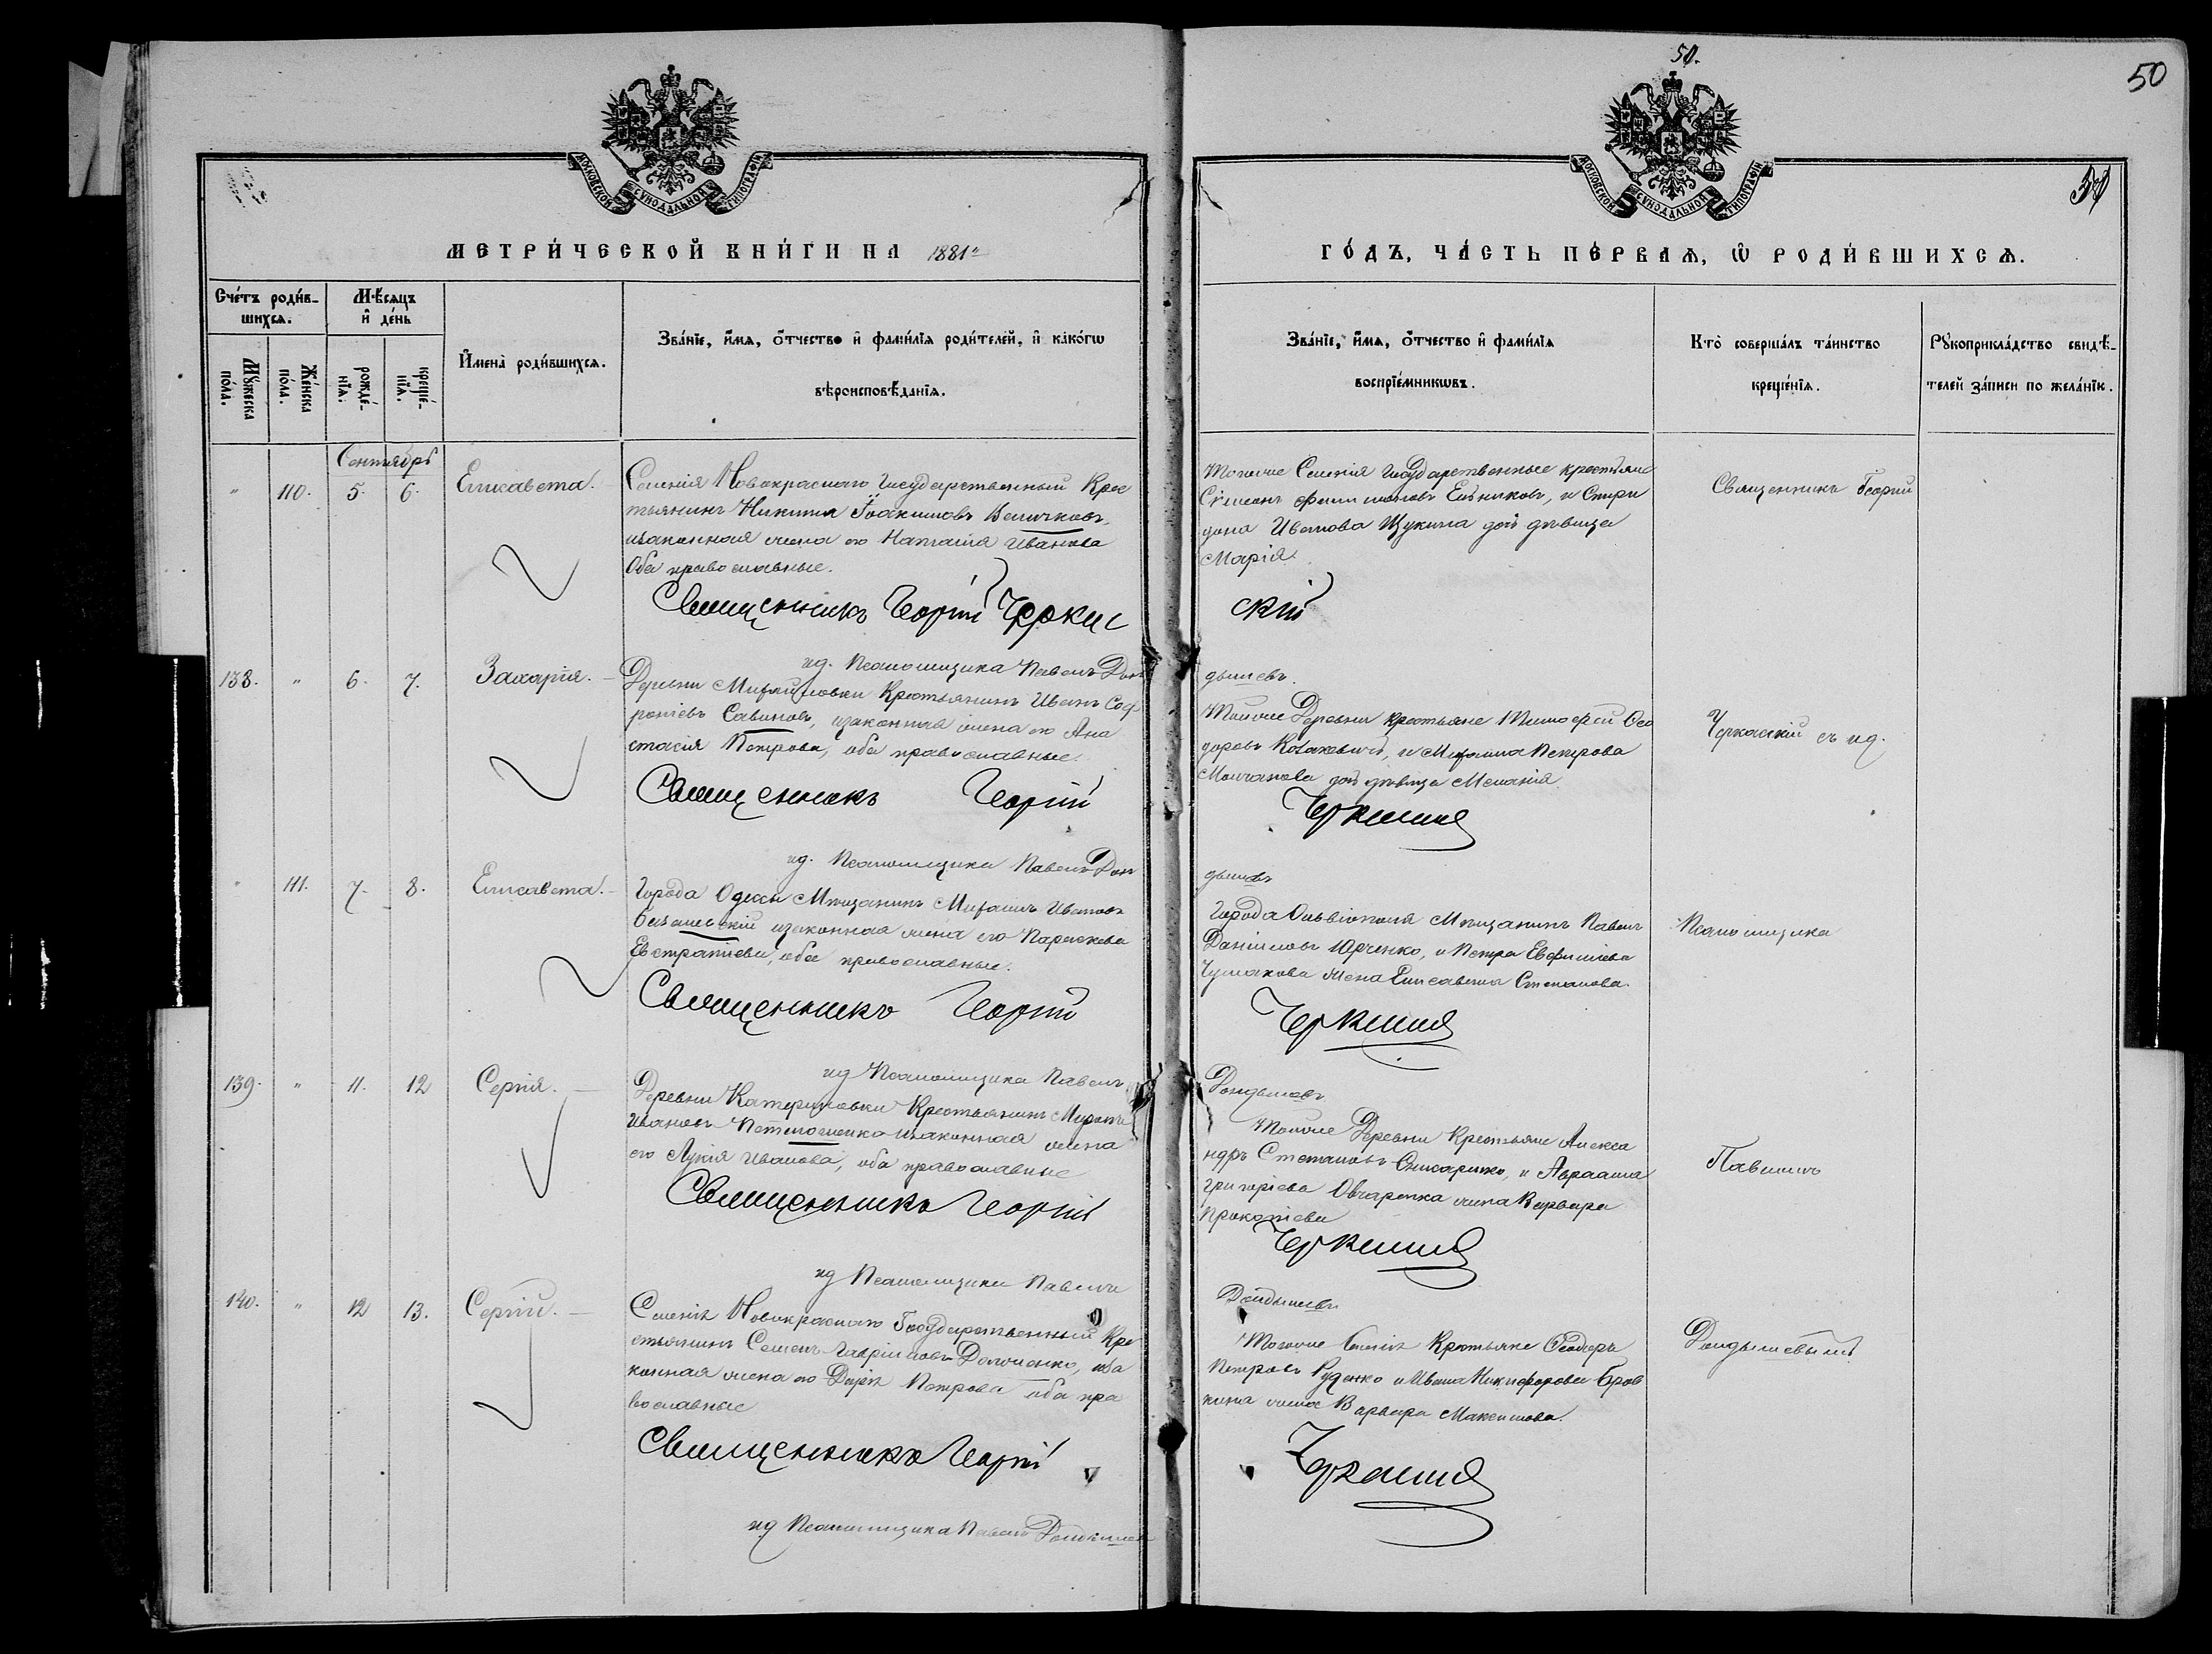 50.
50
МОСКОВСКОЙ СУНОДАЛЬНОЙ ТИПОГРАФІИ
МОСКОВСКОЙ СУНОДАЛЬНОЙ ТИПОГРАФІИ
МЕТРИ́ЧЕСКОЙ КНИ́ГИ НА 1881й
ГО́ДЪ, ЧА́СТЬ ПЕ́РВАѦ, Ѡ РОДИ́ВШИХСѦ.
Сче́тъ роди́в-
шихсѧ.
Мѣ́сѧцъ
и҆ де́нь
Мꙋ́жеска
по́ла.
Же́нска
по́ла.
рожде́-
нїѧ.
креще́-
нїѧ.
И҆мена̀ роди́вшихсѧ.
Зва́нїе, и҆́мѧ, ѻ҆́тчество и҆ фами́лїѧ роди́телей, и҆ како́гѡ
вѣроисповѣ́данїѧ.
Зва́нїе, и҆́мѧ, ѻ҆́тчество и҆ фами́лїѧ
воспрїе́мникѡвъ.
Кто̀ соверша́лъ та́инство
креще́нїѧ.
Рꙋкоприкла́дство свидѣ́-
телей за́писи по жела́нїю.
Сентябрь
" 110. 5. 6. Елисавета.
Селенія Новокраснаго Государственный Крес
тьянинъ Никита Іоакимовъ Величковъ,
изаконная жена его Наталія Иванова
Оба православные.
Священникъ Георгій Черкас
Тогоже Селенія Государственные крестьяне
Сѵмеонъ Филимоновъ Ельниковъ, и Спири
дона Иванова Щукина дочь дѣвица
Марія.
скій
Священникъ Георгій
ид. Псаломщика Павелъ Дон
дышевъ.
138. " 6. 7. Захарія.
Деревни Михайловки Крестьянинъ Иванъ Соф
роніевъ Савиновъ, изаконная жена его Ана
стасія Петрова, оба православные.
Священникъ Георгій
Тойже Деревни крестьяне Тимофей Ѳео
доровъ, и Михаила Петрова
Молчанова дочь дѣвица Меланія
Черкаскій
Черкаскій съ ид.
ид. Псаломщика Павелъ Дон
дышевъ
" 111. 7. 8. Елисавета.
Города Одессы Мѣщанинъ Михаилъ Ивановъ
изаконная жена его Параскева
Евстратіева, оба православные.
Священникъ Георгій
Города Ольвіополя Мѣщанинъ Павелъ
Даніиловъ Юрченко, и Петра Евфиміева
Чумакова жена Елисавета Степанова.
Черкаскій
Псаломщика
ид Псаломщика Павелъ
Дондышевъ
139. " 11. 12 Сергія.
Деревни Катериновки Крестьянинъ Миронъ
Ивановъ изаконная жена
его Лукія Иванова, оба православные
Священникъ Георгій
Тойже Деревни Крестьяне Алекса
ндръ Степановъ, и Авраама
Григоріева Овчаренка жена Варвара
Прокопіева
Черкаскій
Павломъ
ид Псаломщика Павелъ
Дондышевъ
140. " 12 13. Сергій.
Селенія Новокраснаго Государственный Кре
стьянинъ Семенъ Гавріиловъ Долженко, иза
конная жена его Дарія Петрова оба пра
вославные
Священникъ Георгій
Тогоже Селенія Крестьяне Ѳеодоръ
Петровъ Руденко и Ивана Никифорова Бров
кина жена Варвара Максимова.
Черкаскій
Дондышевымъ
ид Псаломщика Павелъ Дондышевъ